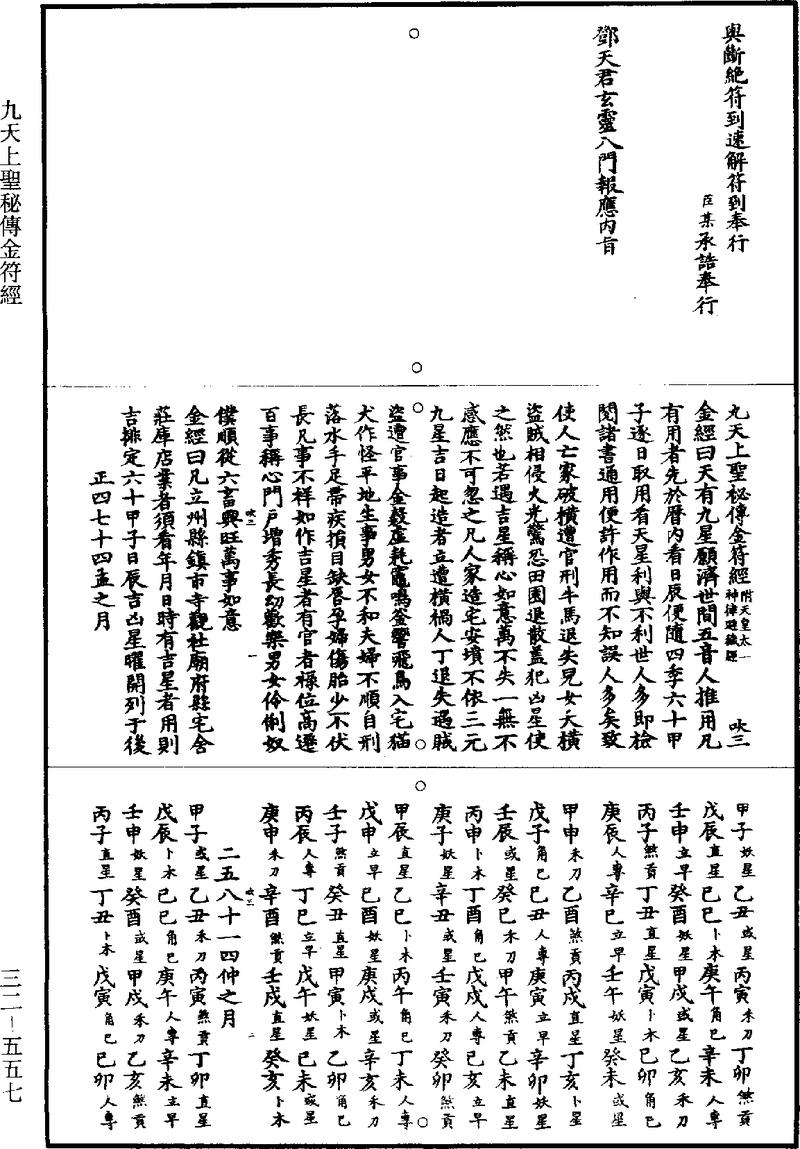 與斷絶符到速解符到奉行
臣某承誥奉行
鄧天君玄靈八門報應內旨
九天上聖秘傳金符經附天皇太一神律避穢經 吹三
金經曰天有九星願濟世間五音人推用凡
有用者先於曆內看日辰便隨四季六十甲
子逐日取用看天星利與不利世人多即檢
閱諸書通用便許作用而不知誤人多矣致
使人亡家破橫遭官刑牛馬退失兒女夭橫
盜賊相侵火光驚恐田園退散蓋犯凶星使
之然也若遇吉星稱心如意萬不失一無不
感應不可忽之凡人家造宅安墳不依三元
九星吉日起造者立遭橫禍人丁退失遇賊
盜遭官事金穀虛耗竈鳴釜響飛鳥入宅猫
犬作怪平地生事男女不和夫婦不順自刑
落水手足帶疾損目缺唇孕婦傷胎少不伏
長凡事不祥如作吉星者有官者祿位高遷
百事稱心門戶增秀長幼歡樂男女伶俐奴
吹三 一
僕順從六畜興旺萬事如意
金經曰凡立州縣鎮市寺觀社廟府縣宅舍
莊庫店業者須看年月日時有吉星者用則
吉排定六十甲子日辰吉凶星曜開列于後
正四七十四孟之月
甲子妖星乙丑或星丙寅禾刀丁卯煞貢
戊辰直星己巳卜木庚午角己辛未人專
壬申立早癸酉妖星甲戌或星乙亥禾刀
丙子煞貢丁丑直星戊寅卜木己卯角己
庚辰人專辛巳立早壬午妖星癸未或星
甲申禾刀乙酉煞貢丙戌直星丁亥卜星
戊子角己己丑人專庚寅立早辛卯妖星
壬辰或星癸巳禾刀甲午煞貢乙未直星
丙申卜木丁酉角己戊戌人專己亥立早
庚子妖星辛丑或星壬寅禾刀癸卯煞貢
甲辰直星乙巳卜木丙午角己丁未人專
戊申立早己酉妖星庚戌或星辛亥禾刀
壬子煞貢癸丑直星甲寅卜木乙卯角己
丙辰人專丁巳立早戊午妖星己未或星
庚申禾刀辛酉煞貢壬戌直星癸亥卜木
吹三 二
二五八十一四仲之月
甲子或星乙丑禾刀丙寅煞貢丁卯直星
戊辰卜木己巳角己庚午人專辛未立早
壬申妖星癸酉或星甲戌禾刀乙亥煞貢
丙子直星丁丑卜木戊寅角己己卯人專
九天上聖秘傳金符經
三二–五五七